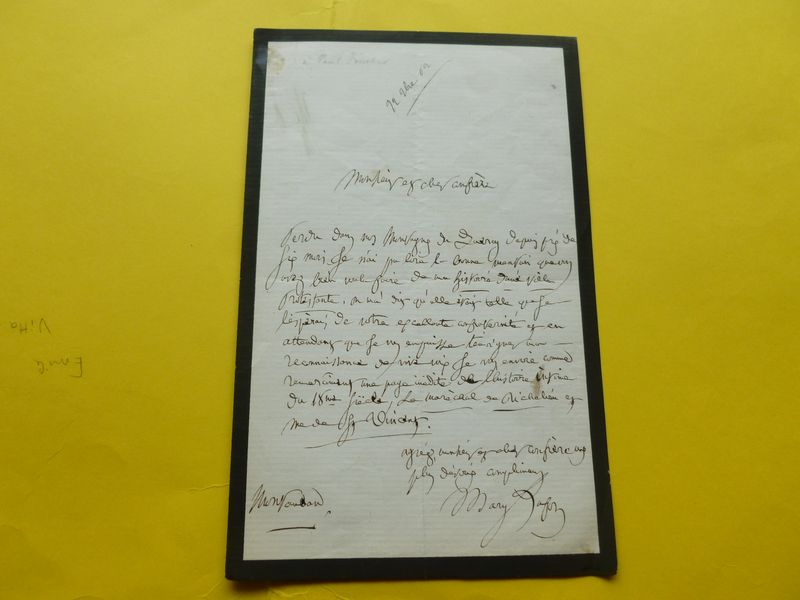 à Paul
22 9bre 62
Monsieur et cher confrère
Perdu dans nos Montagnes du Quercy depuis près de
six mois, je n'ai pu lire la bonne mention que vous
avez bien voulu faire de mon histoire d'une ville
Protestante. on m'a dit qu'elle était telle que je
l'espérais de votre excellente confraternité et en
attendant que je vous en puisse témoigner ma
reconnaissance de vive voix je vous envoie comme
remerciment une page inédite de l'histoire intime
du 18me siècle, Le maréchal de Richelieu et
Me de St Vincent.
agréez, monsieur et cher confrère mes
plus dévoués compliments
Mary Lafon
Montauban,
Emile
Vitta